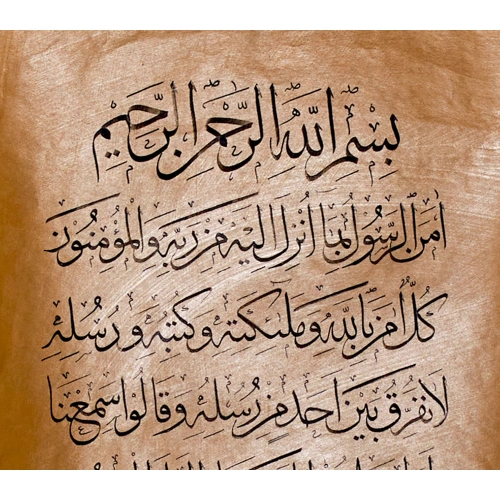 بِسْمِ اللهِ الرَّحْمٰنِ الرَّحِيمِ
اٰمَنَ الرَّسُولُ بِمَا اُنْزِلَ اِلَيْهِ مِنْ رَبِّهِ وَالْمُؤْمِنُونَ
كُلٌّ اٰمَنَ بِاللهِ وَمَلٰئِكَتِهِ وَكُتُبِهِ وَرُسُلِهِ
لَا نُفَرِّقُ بَيْنَ اَحَدٍ مِنْ رُسُلِهِ وَقَالُوا سَمِعْنَا